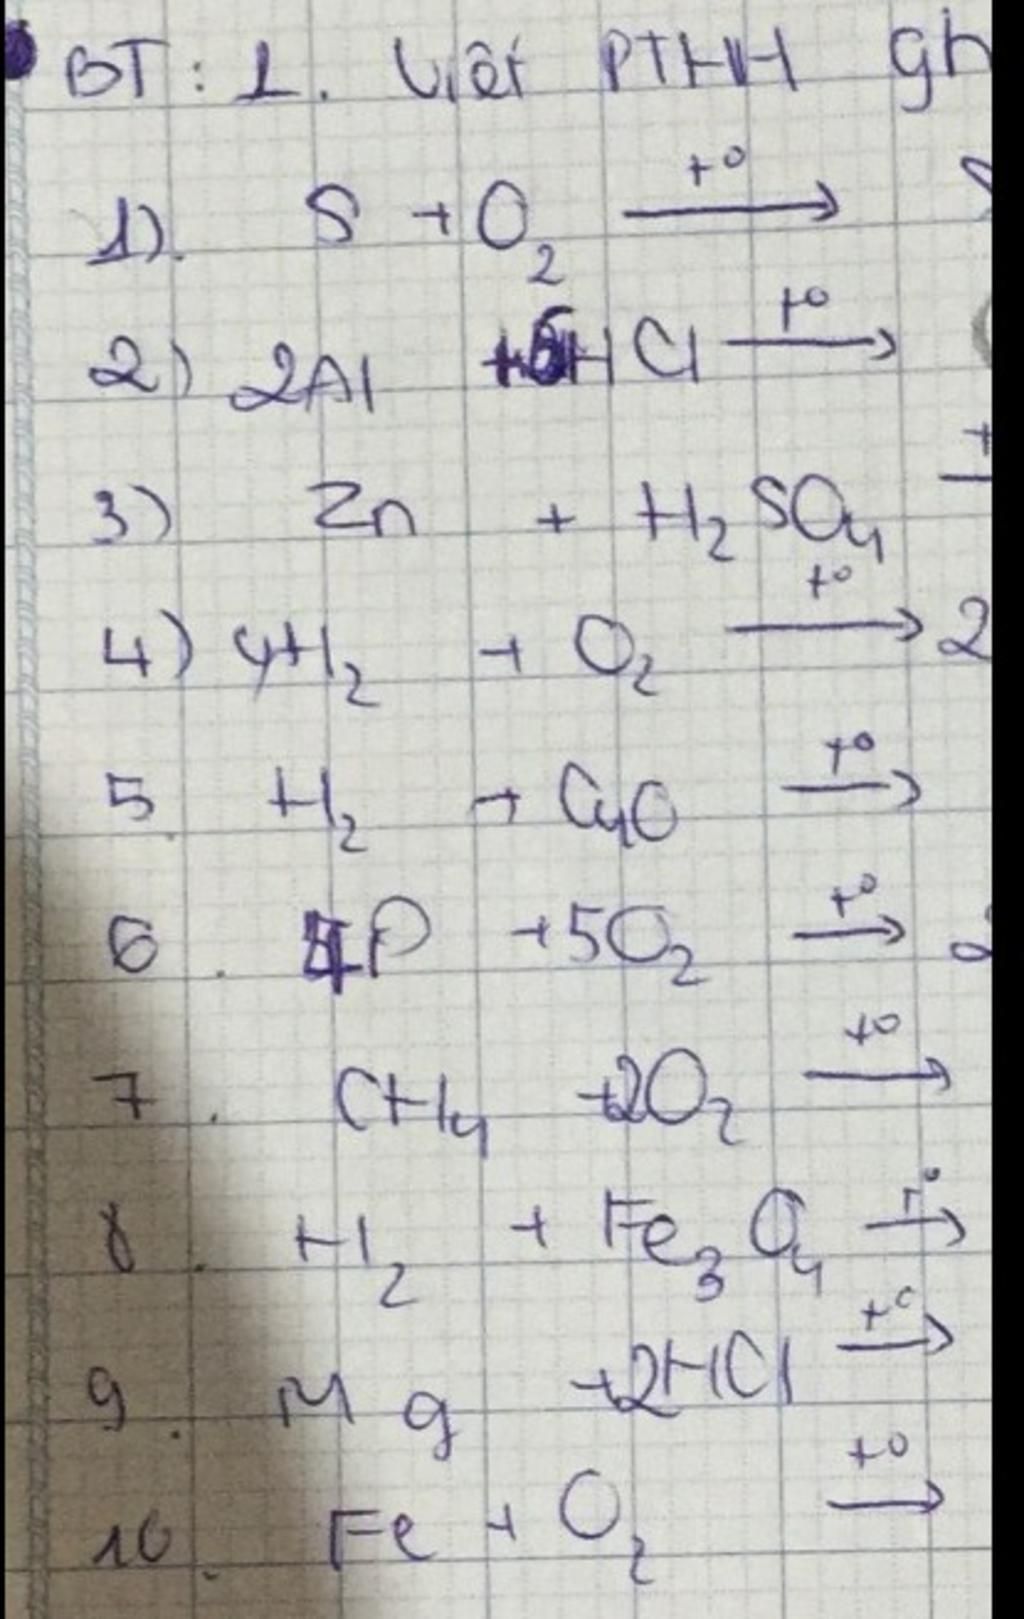 BT: 1. Viết PTHH gh
1). S + O₂ —t⁰→
2) 2Al + 6HCl —t⁰→
3) Zn + H₂SO₄
4) 4H₂ + O₂ —t⁰→ 2
5. H₂ + CuO —t⁰→
6. 4P + 5O₂ —t⁰→ 2
7. CH₄ + 2O₂ —t⁰→
8. H₂ + Fe₃O₄ —t⁰→
9. Mg + 2HCl —t⁰→
10. Fe + O₂ —t⁰→